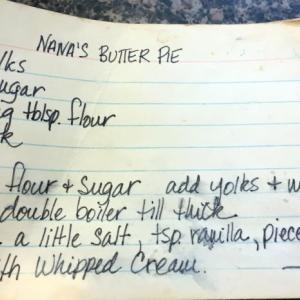 NANA'S BUTTER PIE
lks
ugar
g tblsp. flour
k
flour + Sugar add yolks + m
double boiler till thick
. a little salt, tsp. vanilla, piece
th Whipped Cream.